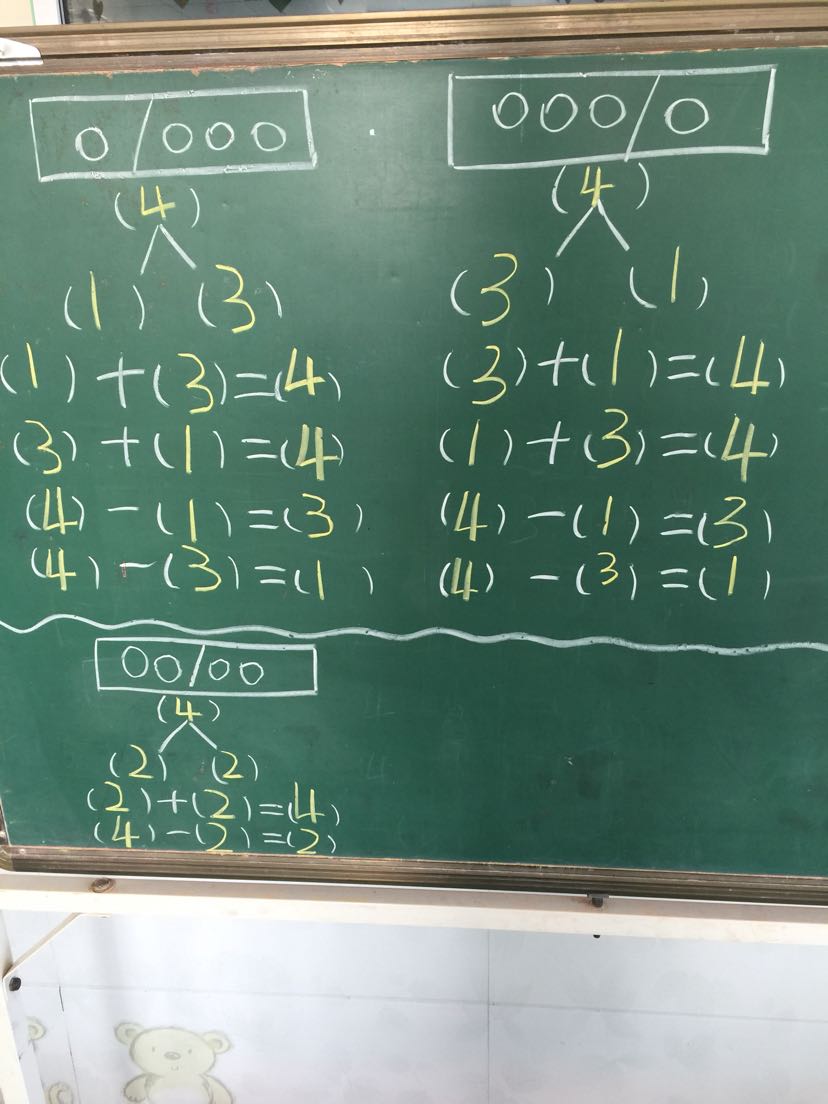 (4)
(1) (3)
(1)+(3)=(4)
(3)+(1)=(4)
(4)-(1)=(3)
(4)-(3)=(1)
(4)
(3) (1)
(3)+(1)=(4)
(1)+(3)=(4)
(4)-(1)=(3)
(4)-(3)=(1)
(4)
(2) (2)
(2)+(2)=(4)
(4)-(2)=(2)